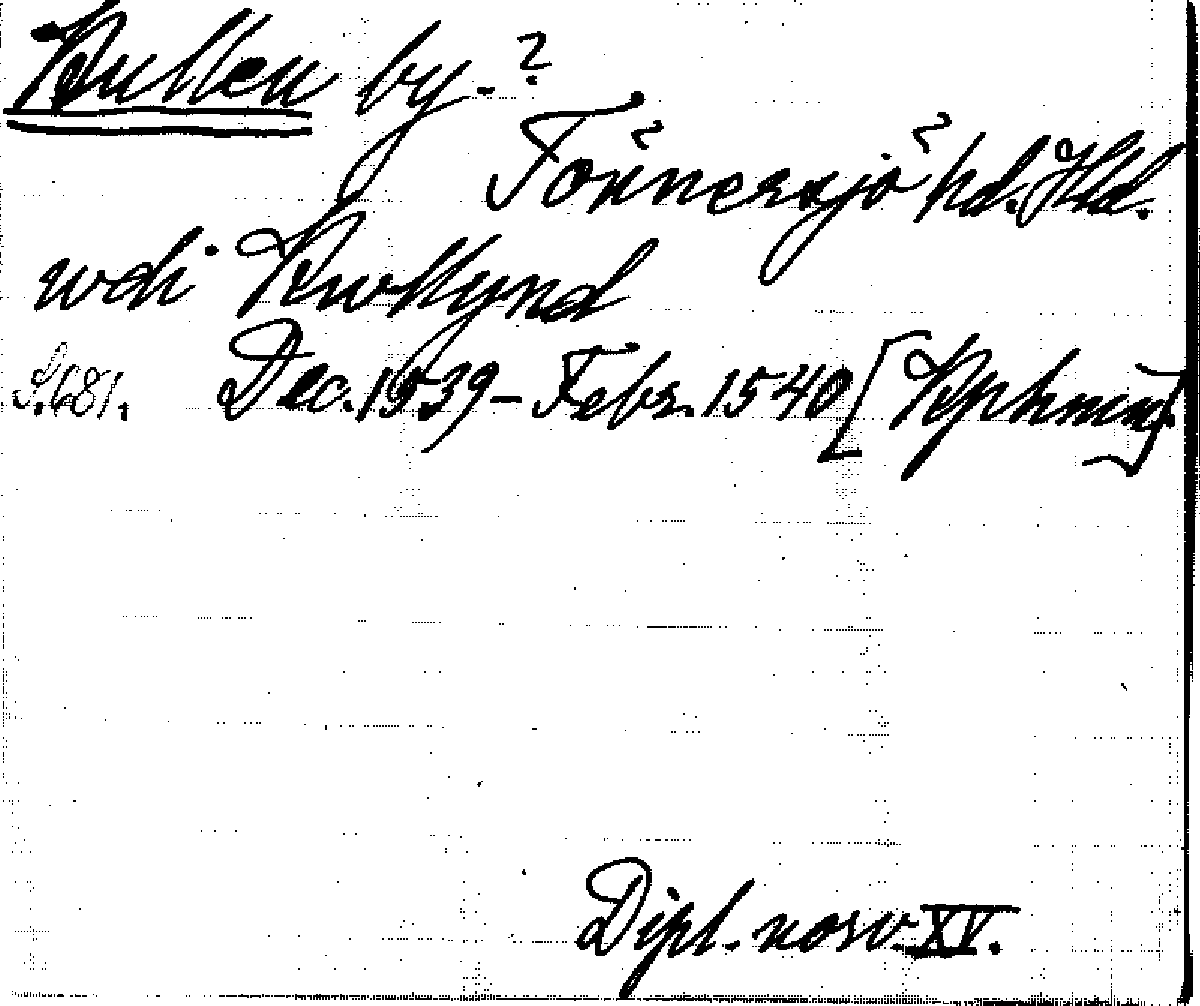 Kullen by. ?
Tönnersjö ? hd. Hld.
wdi Kwllynd
S. 681. Dec. 1539 – Febr. 1540 [Kphmin].
Dipl. norv. XV.